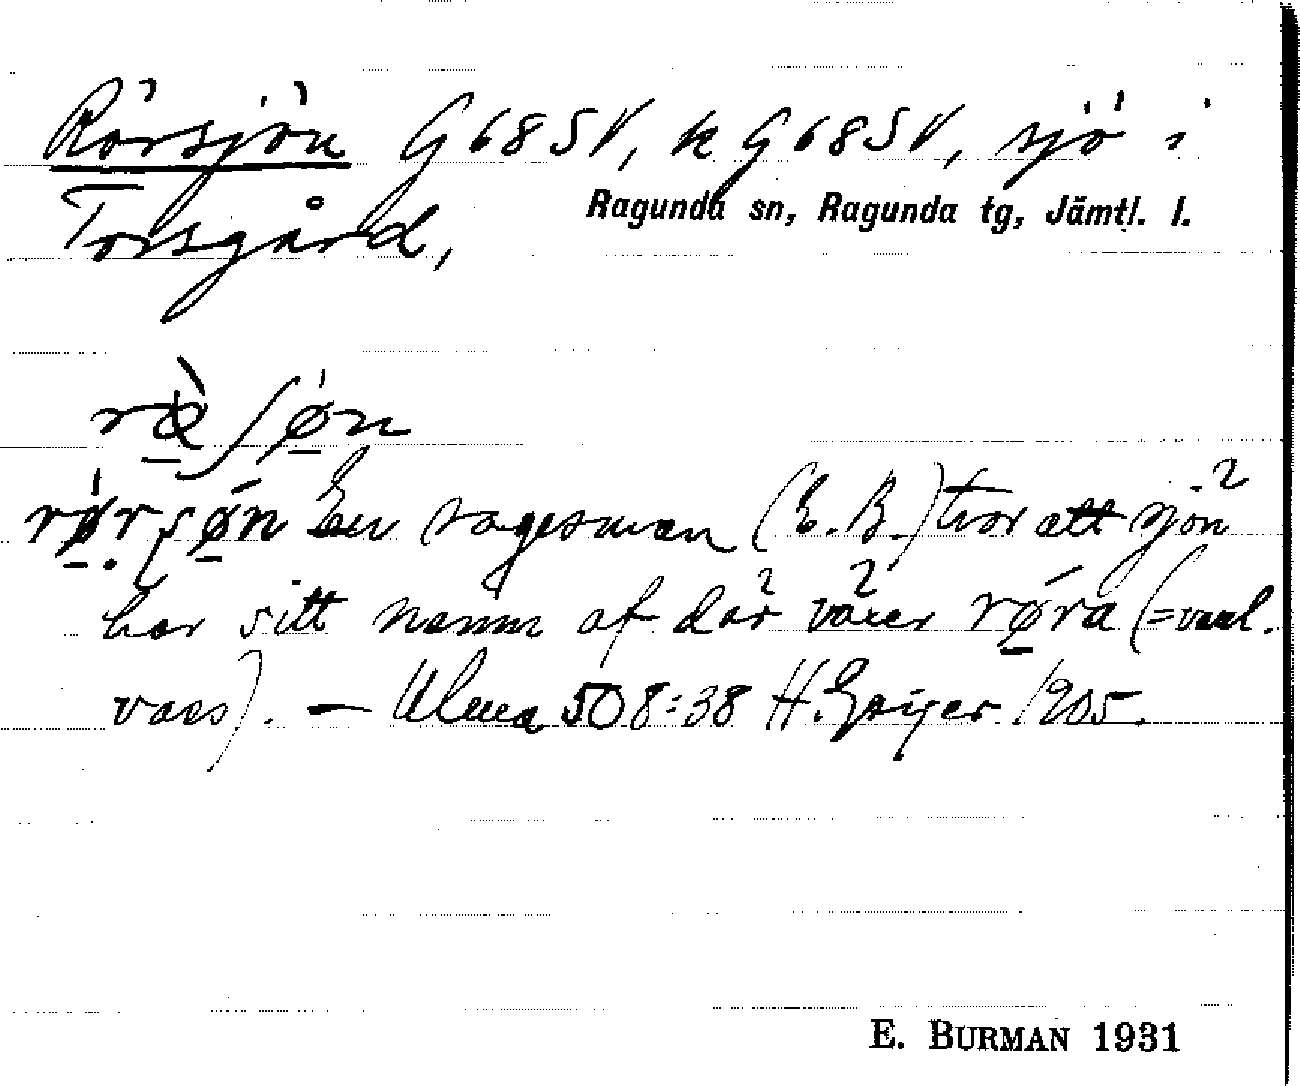 Rörsjön G68SV, k G68SV, sjö i
Torsgård, Ragunda sn, Ragunda tg, Jämtl. l.
rø̀ʃøn
rørʂøn En sagesman (E. B.) tror att sjön
har sitt namn af där växer røra (= vanl.
vass). — Ulma 508:38 H. Geijer 1905.
E. BURMAN 1931